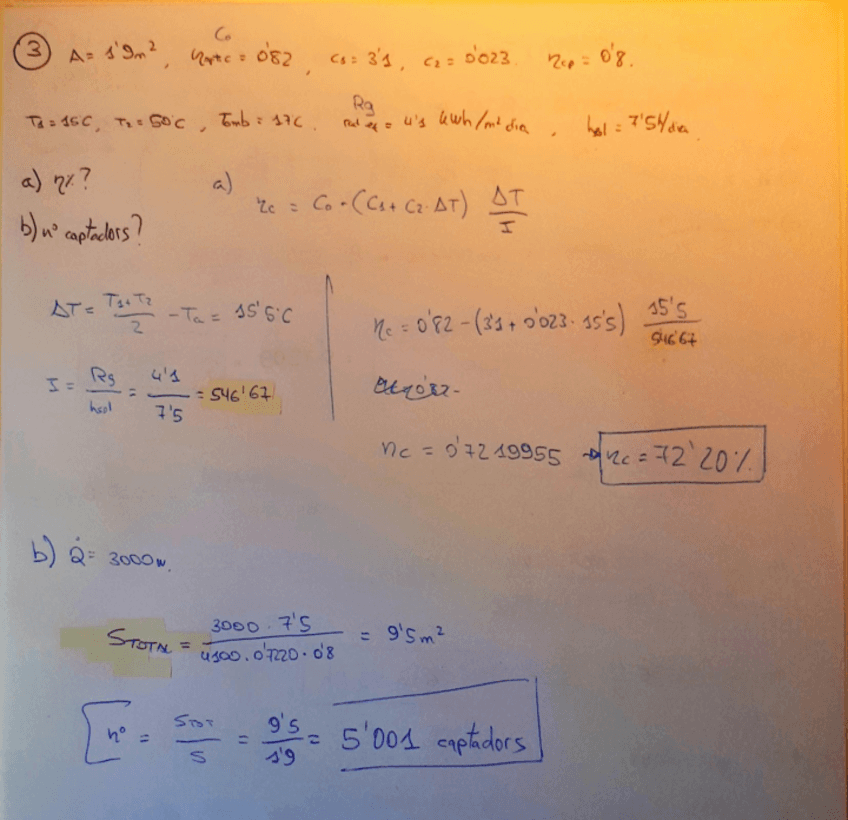 3 A = 1'9m², C₀ η₀ₚₜᵢc = 0'82, c₁ = 3'1, c₂ = 0'023. ηcp = 0'8.
T₁ = 15C, T₂ = 50°C, Tamb = 17C. Rg = 4'1 kWh/m² dia, hsol = 7'5h/dia
a) η%?
b) nº captadors?
a) ηc = C₀ - (C₁ + C₂·ΔT) ΔT/I
ΔT = (T₁+T₂)/2 - Ta = 15'5°C
I = Rg/hsol = 4'1/7'5 = 546'67
ηc = 0'82 - (3'1 + 0'023 · 15'5) 15'5/546'67
ηc = 0'7219955 → ηc = 72'20%
b) Q̇ = 3000w.
STOTAL = (3000 · 7'5)/(4100 · 0'7220 · 0'8) = 9'5m²
nº = STOT/S = 9'5/1'9 = 5'001 captadors